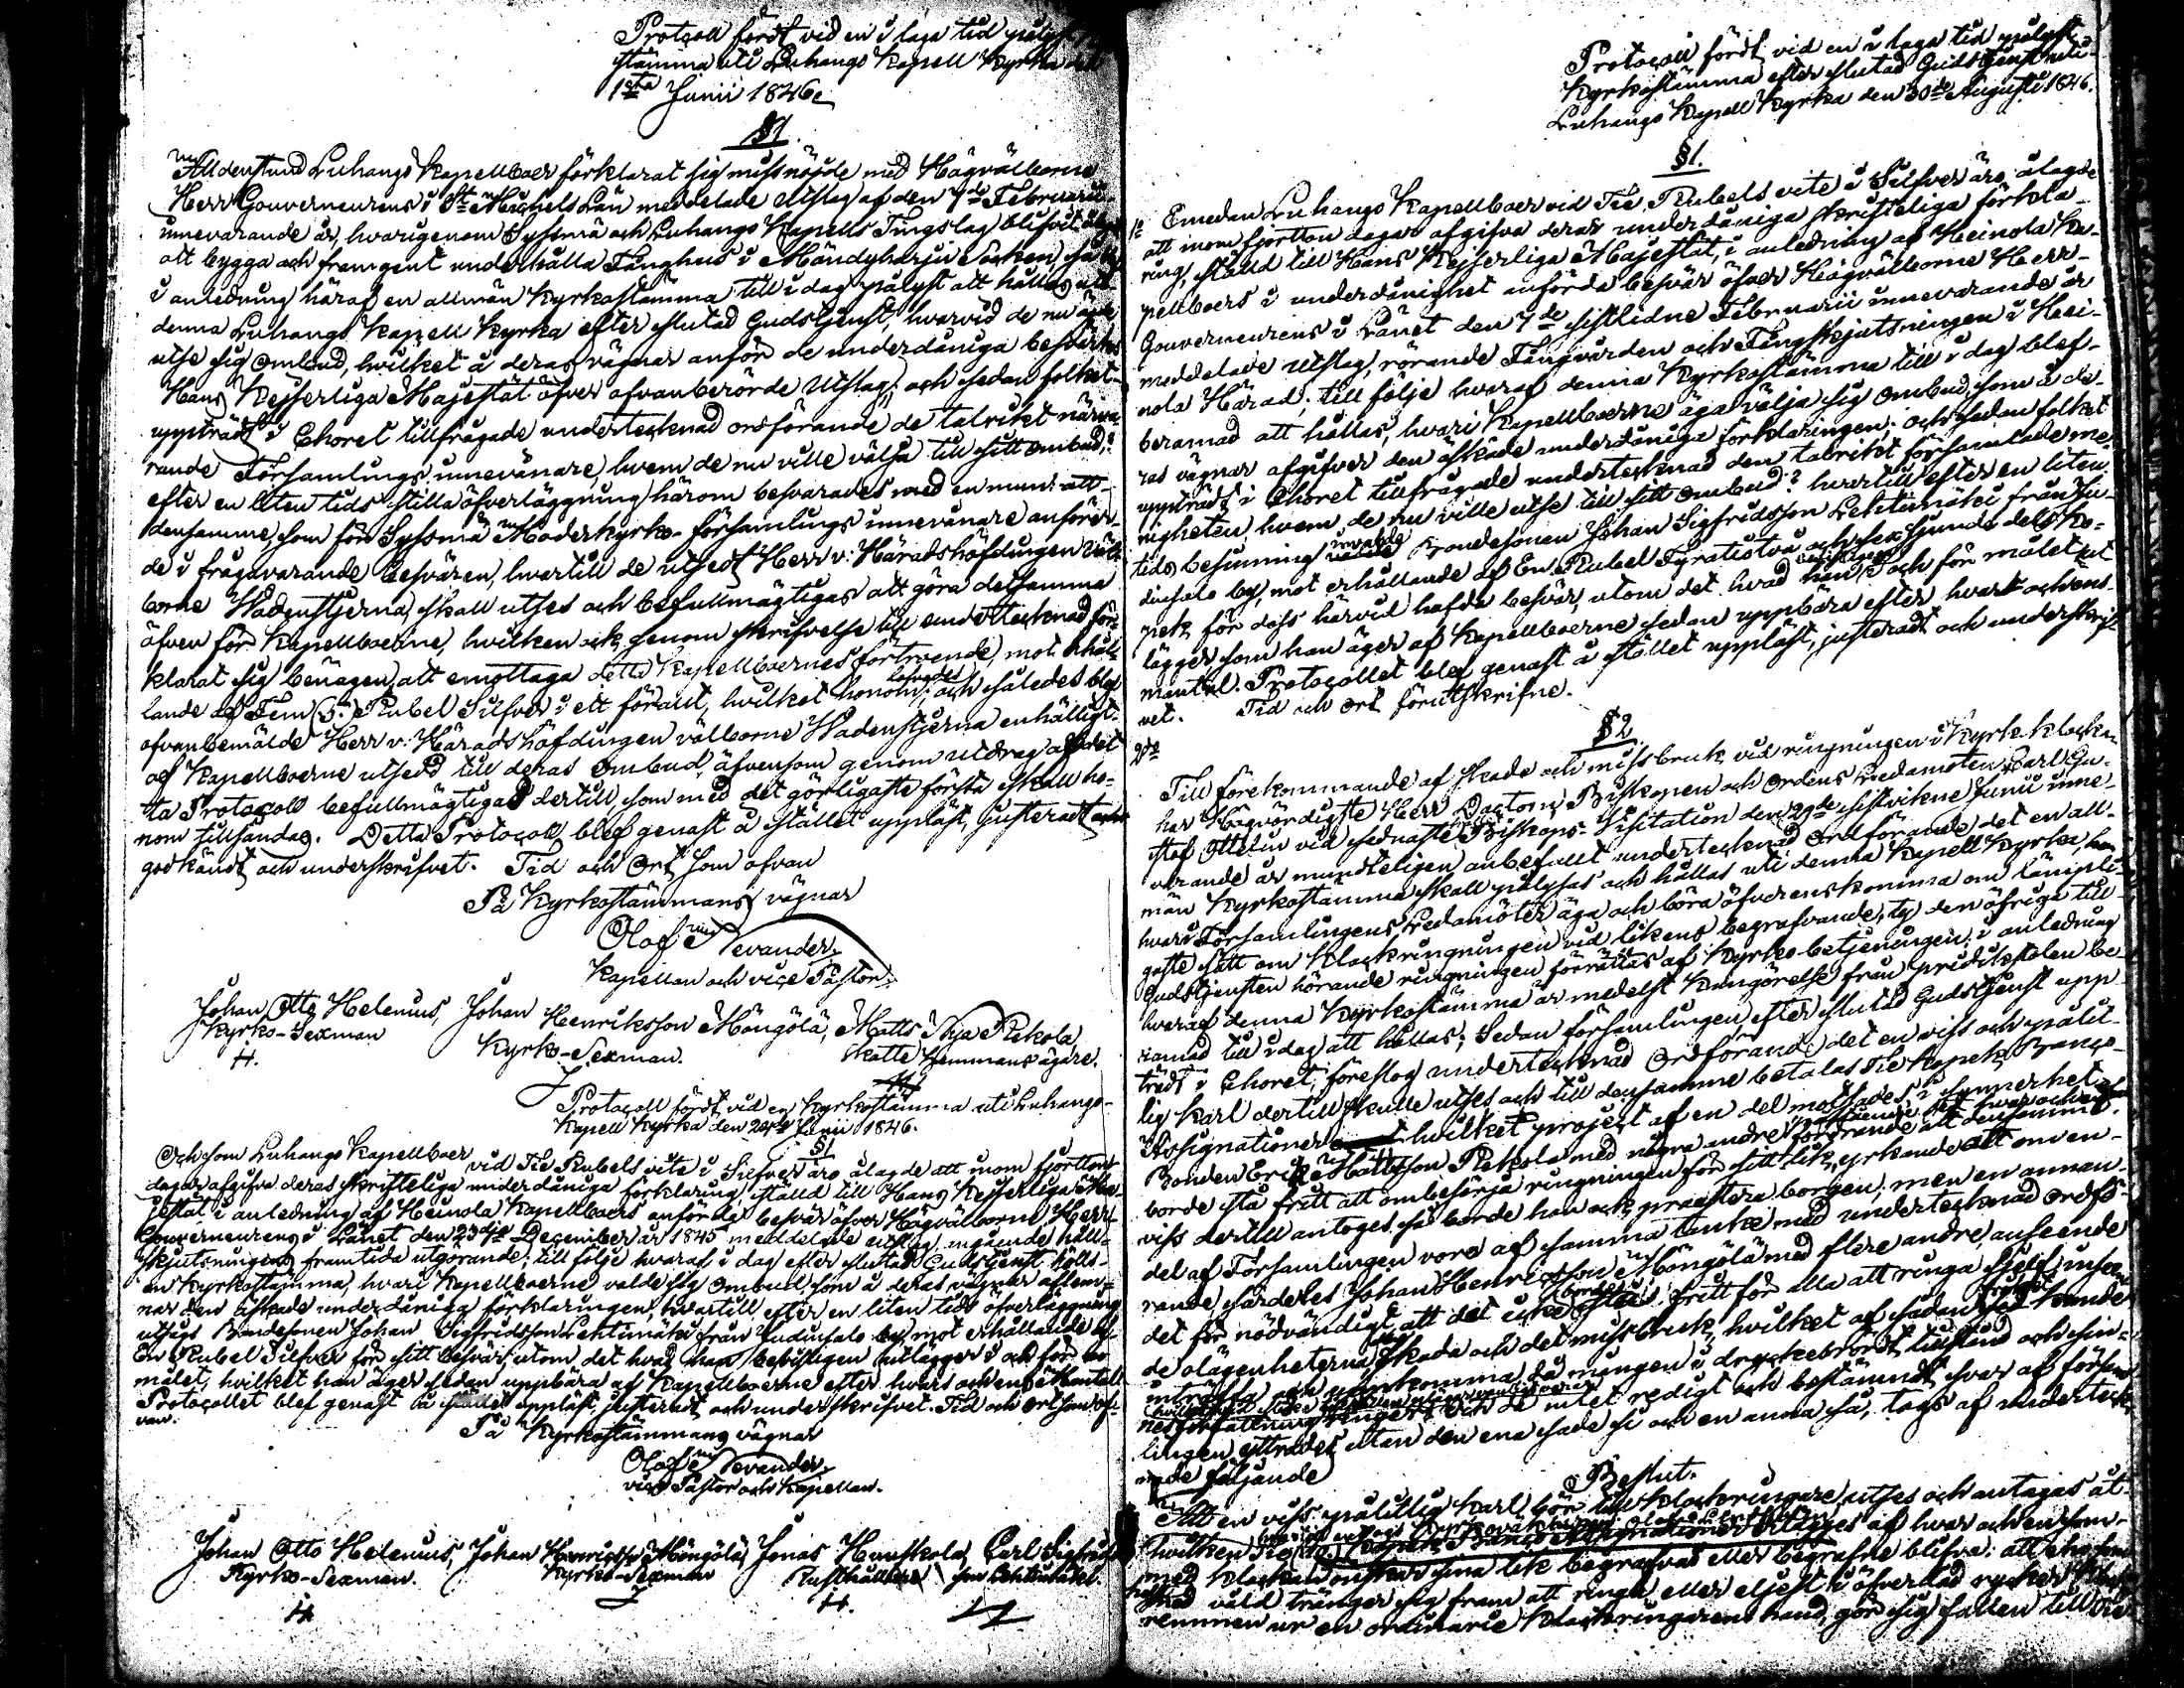 Protocoll fördt vid en i laga tid pålyst
stämma uti Luhango Kapell Kyrka den
1sta Junii 1846.
§1.
Alldenstund Luhango Kapellboer förklarat sig missnöjde med Högvälborne
Herr Gouverneurens i St Michels Län meddelade Utslag af den 7de Februarii
innevarande år, hvarigenom Sysmä och Luhango Kapells Tingslag blifvit
att bygga och framgent underhålla Fånghus i Mändyharju Socken, så
i anledning häraf en allmän Kyrkostämma till i dag pålyst att hållas uti
denna Luhango Kapell Kyrka efter slutad Gudstjenst, hvarvid de nu äga
utse sig Ombud, hvilket å deras vägnar anför de underdåniga besvären
Hans Kejserliga Majestät öfver ofvanberörde Utslag; och sedan folket
uppträdt i Choret tillfrågade undertecknad ordförande de talrikt närva-
rande Församlings innevånare, hvem de nu ville välja till sitt ombud?
efter en liten tids stilla öfverläggning härom besvarades med en mun: att
densamme, som för Sysmä Moderkyrko-församlings innevånare anför-
de i frågavarande Besvären, hvartill de utsedt Herr v: Häradshöfdingen Väl-
borne Wadenstjerna, skall utses och befullmägtigas att göra detsamma
äfven för Kapellboerne, hvilken ock genom skrifvelse till undertecknad för-
klarat sig benägen, att emottaga detta Kapellboernes förtroende, mot erhål-
lande af Fem (5.) Rubel Silfver i ett för allt, hvilket honom lofvades; och således blef
ofvanbemälde Herr v: Häradshöfdingen välborne Wadenstjerna enhälligt
af Kapellboerne utsedd till deras Ombud, äfvensom genom utdrag af det-
ta Protocoll befullmägtigas dertill, som med det görligaste första skall ho-
nom tillsändas. Detta Protocoll blef genast å stället uppläst, justeradt
godkändt och underskrifvet. Tid och Ort som ofvan
På Kyrkostämmans vägnar
Olof Nevander
Kapellan och vice Pastor.
Johan Otto Helenius, Johan Henriksson Möngölä, Matts Nya Rekola,
Kyrko-Sexman Kyrko-Sexman. Skatte Hemmans ägare.
Protocoll fördt vid en Kyrkostämma uti Luhango
Kapell Kyrka den Junii 1846.
§1
Och som Luhango Kapellboer vid Tio Rubels vite i Silfver äro ålagde att inom fjorton
dagar afgifva deras skrifteliga underdåniga förklaring, ställd till Hans Kejserliga Ma-
jestät i anledning af Heinola Kapellboers anförda besvär öfver Högvälborne Herr
Gouverneurens i Länet den 23dje December år 1845 meddelade utslag angående håll-
skjutsningens framtida utgörande; till följe hvaraf i dag efter slutad Gudstjenst hölls
en Kyrkostämma, hvari Kapellboerne valde sig Ombud, som å deras vägnar aflem-
nar den äskade underdåniga förklaringen, hvartill efter en liten tids öfverläggning
utsågs Bondesonen Johan Sigfridsson Lehtimäki från Judinsalo by, mot erhållande af
En Rubel Silfver för sitt besvär utom det hvad han bevisligen utlägger i och för
målet, hvilket han äger sedan uppbära af Kapellboerne efter hvars och ens Mantall
Protocollet blef genast å stället uppläst, justeradt och underskrifvet. Tid och ort som of-
van.
På Kyrkostämmans vägnar
Olof Nevander
vice Pastor och Kapellan.
Johan Otto Helenius, Johan Henriksson Möngölä, Jonas Hauskola, Carl Sigfrids-
Kyrko-Sexman. Kyrko-Sexman Rusthållare son Lehtimäki.
Protocoll fördt vid en i laga tid pålyst
Kyrkostämma efter slutad Gudstjenst uti
Luhango Kapell Kyrka den 30de Augusti 1846.
§1.
1o Emedan Luhango Kapellboer vid Tio Rubels vite i Silfver äro ålagde
att inom fjorton dagar afgifva deras underdåniga skrifteliga förkla-
ring, ställd till Hans Kejserliga Majestät, i anledning af Heinola Ka-
pellboers i underdånighet anförde besvär öfver Högvälborne Herr
Gouverneurens i Länet den 7de sistlidne Februarii innevarande år
meddelade Utslag, rörande Fångvården och Fångskjutsningen i Hei-
nola Härad; till följe hvaraf denna Kyrkostämma till i dag blef
beramad att hållas, hvari Kapellboerne äga välja sig Ombud, som å de-
ras vägnar afgifver den äskade underdåniga förklaringen; och sedan folket
uppträdt i Choret tillfrågade undertecknad den talrikt församlade me-
nigheten, hvem de nu ville utse till sitt Ombud? hvartill efter en liten
tids besinning invalde Bondesonen Johan Sigfridsson Lehtimäki från Ju-
dinsalo by, mot erhållande af En Rubel Fyratiotvå och sex sjundedels Ko-
pek för dess härvid hafda besvär, utom det hvad han i och för målet ut-
lägger, som han äger af Kapellboerne sedan uppbära efter hvars och ens
mantal. Protocollet blef genast å stället uppläst, justeradt och underskrif-
vet. Tid och Ort förutskrifne.
§2.
2do
Till förekommande af skada och missbruk vid ringningen i Kyrko klockan
har Högvördigste Herr Doctorn, Biskopen och Ordens Ledamoten Carl Gu-
staf Ottelin vid sednaste Biskops-Visitation den 29de sistvikne Junii inne-
varande år mundteligen anbefallt undertecknad Ordförande, det en all-
män Kyrkostämma skall pålysas och hållas uti denna Kapell Kyrka,
hvari Församlingens Ledamöter äga och böra öfverenskomma om lämpli-
gaste sätt om Klockringningen vid likens begrafvande, ty den öfriga till
Gudstjensten hörande ringningen förrättas af Kyrko-betjeningen; i anledning
hvaraf denna Kyrkostämma är medelst Kungörelse från predikstolen be-
ramad till i dag att hållas; Sedan församlingen efter slutad Gudstjenst upp-
trädt i Choret, föreslog undertecknad Ordförande det en viss och pålit-
lig Karl dertill skulle utses och till densamme betalas Tio Kopek Banco
Assignationer hvilket project af en del motsades, i synnerhet
Bonden Erik Mattsson Rekola med några andre
borde stå fritt att ombesörja ringningen för sitt lik, yrkande att om en
viss dertill antoges, så borde han ock præstera borgen; men en annan
del af Församlingen vore af samma tanke med undertecknad Ordfö-
rande, särdeles Johan Henriksson Möngölä med flere andre, anseende
det för nödvändigt, att det icke borde fritt för alla att ringa sjelf,
de olägenheterna, skada och det missbruk, hvilket af
inträffa och uppkomma, då mången i dryckesrördt tillstånd och
och då intet redigt och bestämdt svar af försam-
lingen yttrades utan den ena sade så och en annan så, togs af underteck-
nade följande
Beslut.
Att en viss pålitlig Karl bör till klockringare utses och antagas åt
hvilken Tio (10) Kopek Banco Assignationer erlägges af hvar och en som
med klockan önskar sina lik begrafvas eller begrafne blifva:
med våld tränger sig fram att ringa eller eljest i öfverdåd rycker
remmen ur en ordinarie Klockringarens hand, gör sig fallen till